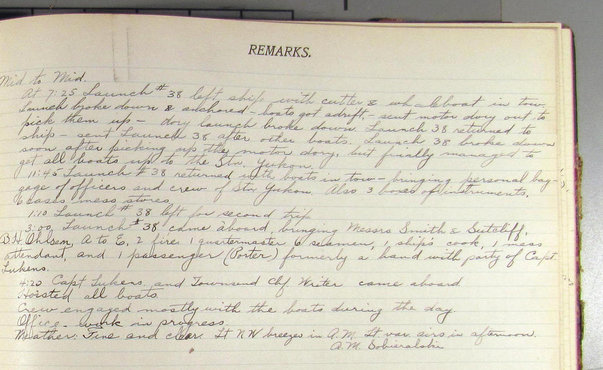 REMARKS.
Mid to Mid.
At 7:25 Launch # 38 left ship with cutter & whaleboat in tow.
Launch broke down & anchored - boats got adrift, - sent motor dory out to
pick them up - dory launch broke down. Launch 38 returned to
ship - sent Launch 38 after other boats. Launch 38 broke down
soon after picking up the motor dory, but finally managed to
get all boats up to the Str. Yukon.
11:45 Launch # 38 returned with boats in tow - bringing personal bag-
gage of officers and crew of Str Yukon. Also 3 boxes of instruments,
6 bxs mess stores
1:10 Launch # 38 left for second trip
3:00, Launch # 38 came aboard, bringing Messrs Smith & Sutcliff,
B.H. Ohlsen, A to E, 2 fire. 1 quartermaster 6 seamen, 1 ship's cook, 1 mess
attendant, and 1 passenger (Porter) formerly a hand with party of Capt.
Lukens.
4:20 Capt Lukens, and Townsend Chf Writer came aboard
Hoisted all boats
Crew engaged mostly with the boats during the day.
Office work in progress
Weather: Fine and clear. Lt NW breezes in A.M. Lt var. airs in afternoon.
A.M. Sobieralski